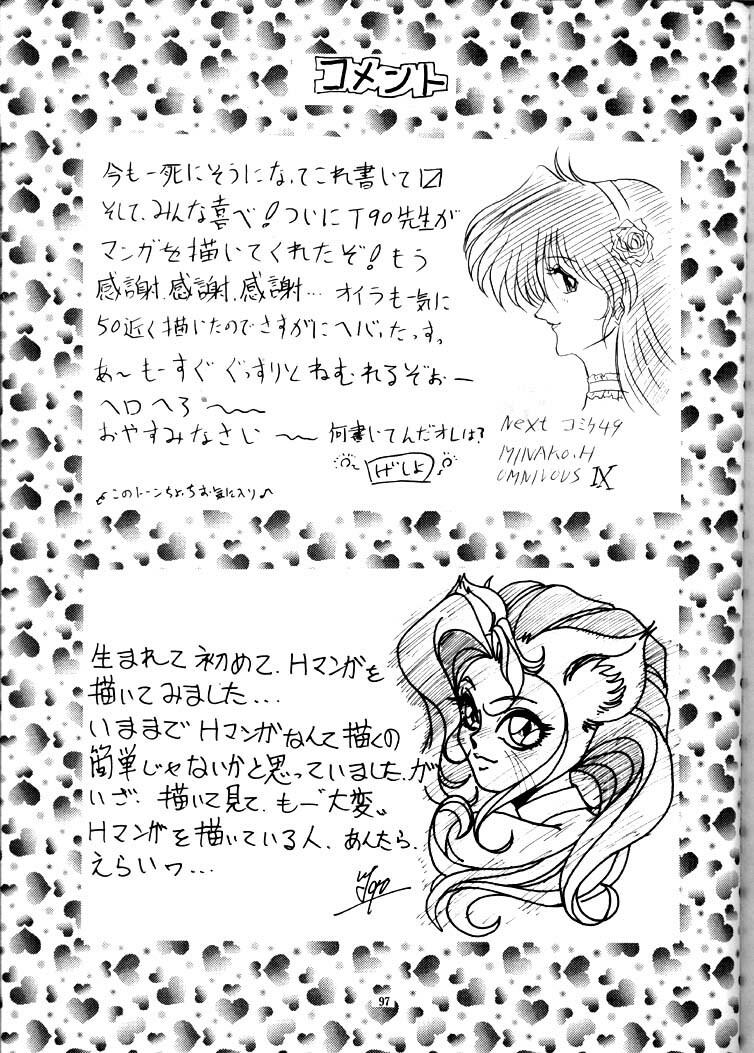 コメント
今も一死にそうになってこれ書いて〼
そして、みんな喜べ!ついにT90先生が
マンガを描いてくれたぞ!もう
感謝、感謝、感謝… オイラも一気に
50近く描いたのでさすがにヘバッたっす。
あ~もーすぐぐっすりとねむれるぞぉー
ヘロヘろ~
おやすみなさい~ 何書いてんだオレは?
げしょ
このトーンちょっちお気に入り♪
Next コミケ49
MINAKO.H
OMNIVOUS IX
生まれて初めて、Hマンガを
描いてみました...
いままでHマンガなんて描くの
簡単じゃないかと思っていました、が
いざ、描いて見て、もー"大変"
Hマンガを描いている人、あんたら、
えらいワ...
T90
97